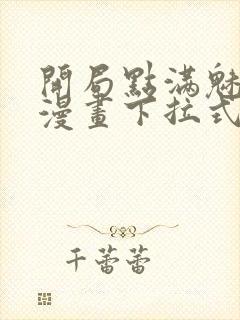 開局點滿魅
漫畫下拉式
千蕾蕾